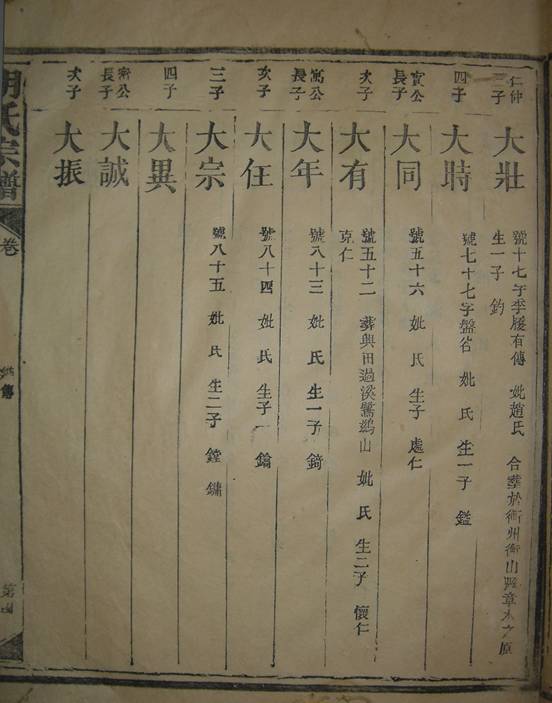 仁仲
三子
大壯
號十七字季履有傳 妣趙氏 合葬於衡州衡山縣章木之原
生一子 鈞
四子
大時
號七十七字盤谷 妣 氏 生一子 鎰
實公
長子
大同
號五十六 妣 氏 生子 處仁
次子
大有
號五十二 葬興田過溪鷺鷀山 妣 氏 生二子 懷仁
克仁
寓公
長子
大年
號八十三 妣 氏 生一子 錡
次子
大任
號八十四 妣 氏 生子一 鐈
三子
大宗
號八十五 妣 氏 生二子 鏜 鏞
四子
大異
公
長子
大誠
次子
大振
胡氏宗譜
卷
傳
第